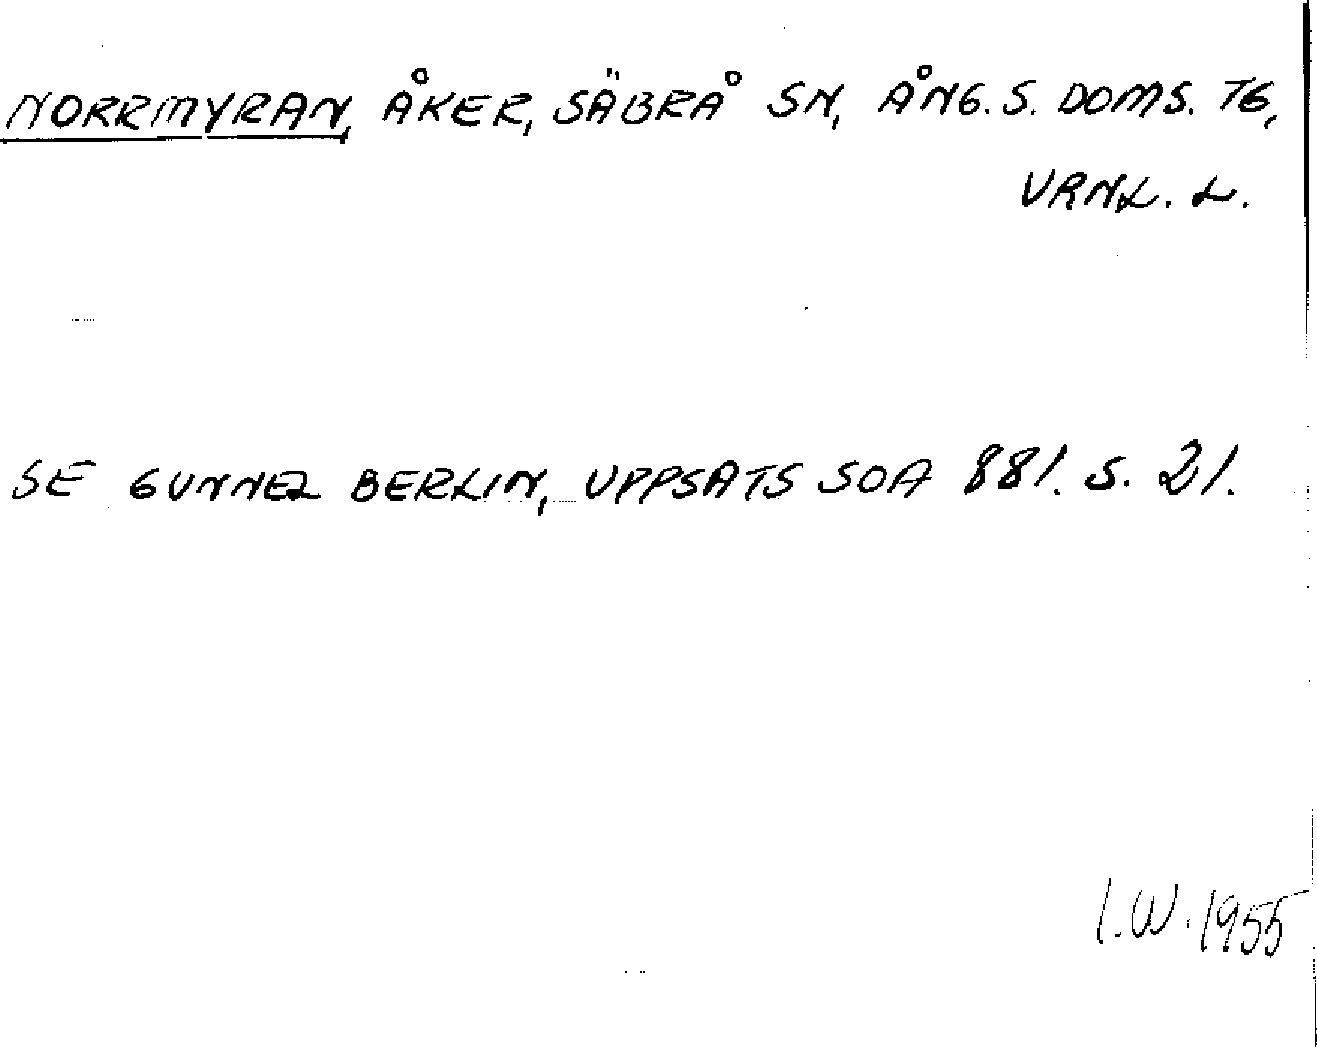 NORRMYRAN, ÅKER, SÄBRÅ SN, ÅNG. S. DOMS. TG,
VRNL. L.
SE GUNNEL BERLIN, UPPSATS SOA 881. S. 21.
I.W. 1955